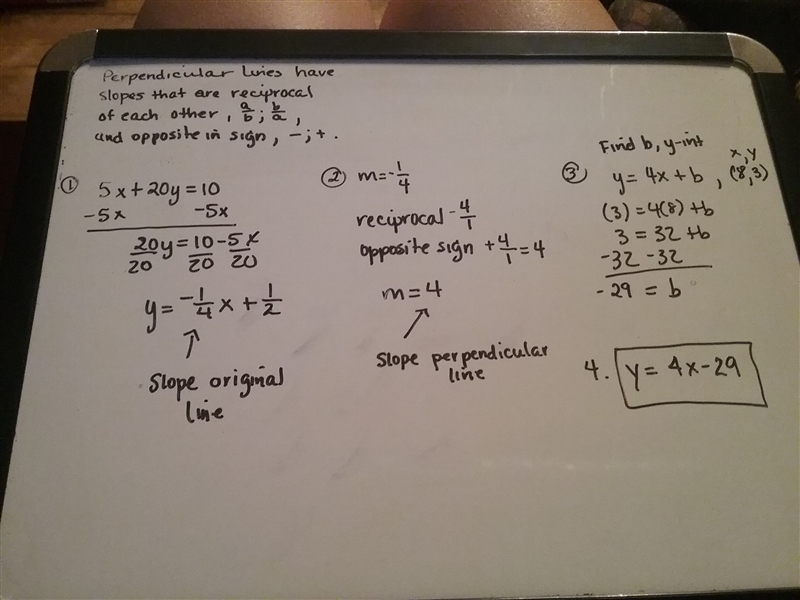 Perpendicular lines have
slopes that are reciprocal
of each other, a/b ; b/a,
and opposite in sign, - ; + .
① 5x + 20y = 10
-5x -5x
20y/20 = 10/20 - 5x/20
y = -1/4 x + 1/2
Slope original
line
② m = -1/4
reciprocal - 4/1
opposite sign + 4/1 = 4
m = 4
Slope perpendicular
line
Find b, y-int
x, y
③ y = 4x + b , (8,3)
(3) = 4(8) + b
3 = 32 + b
-32 -32
-29 = b
4. y = 4x - 29